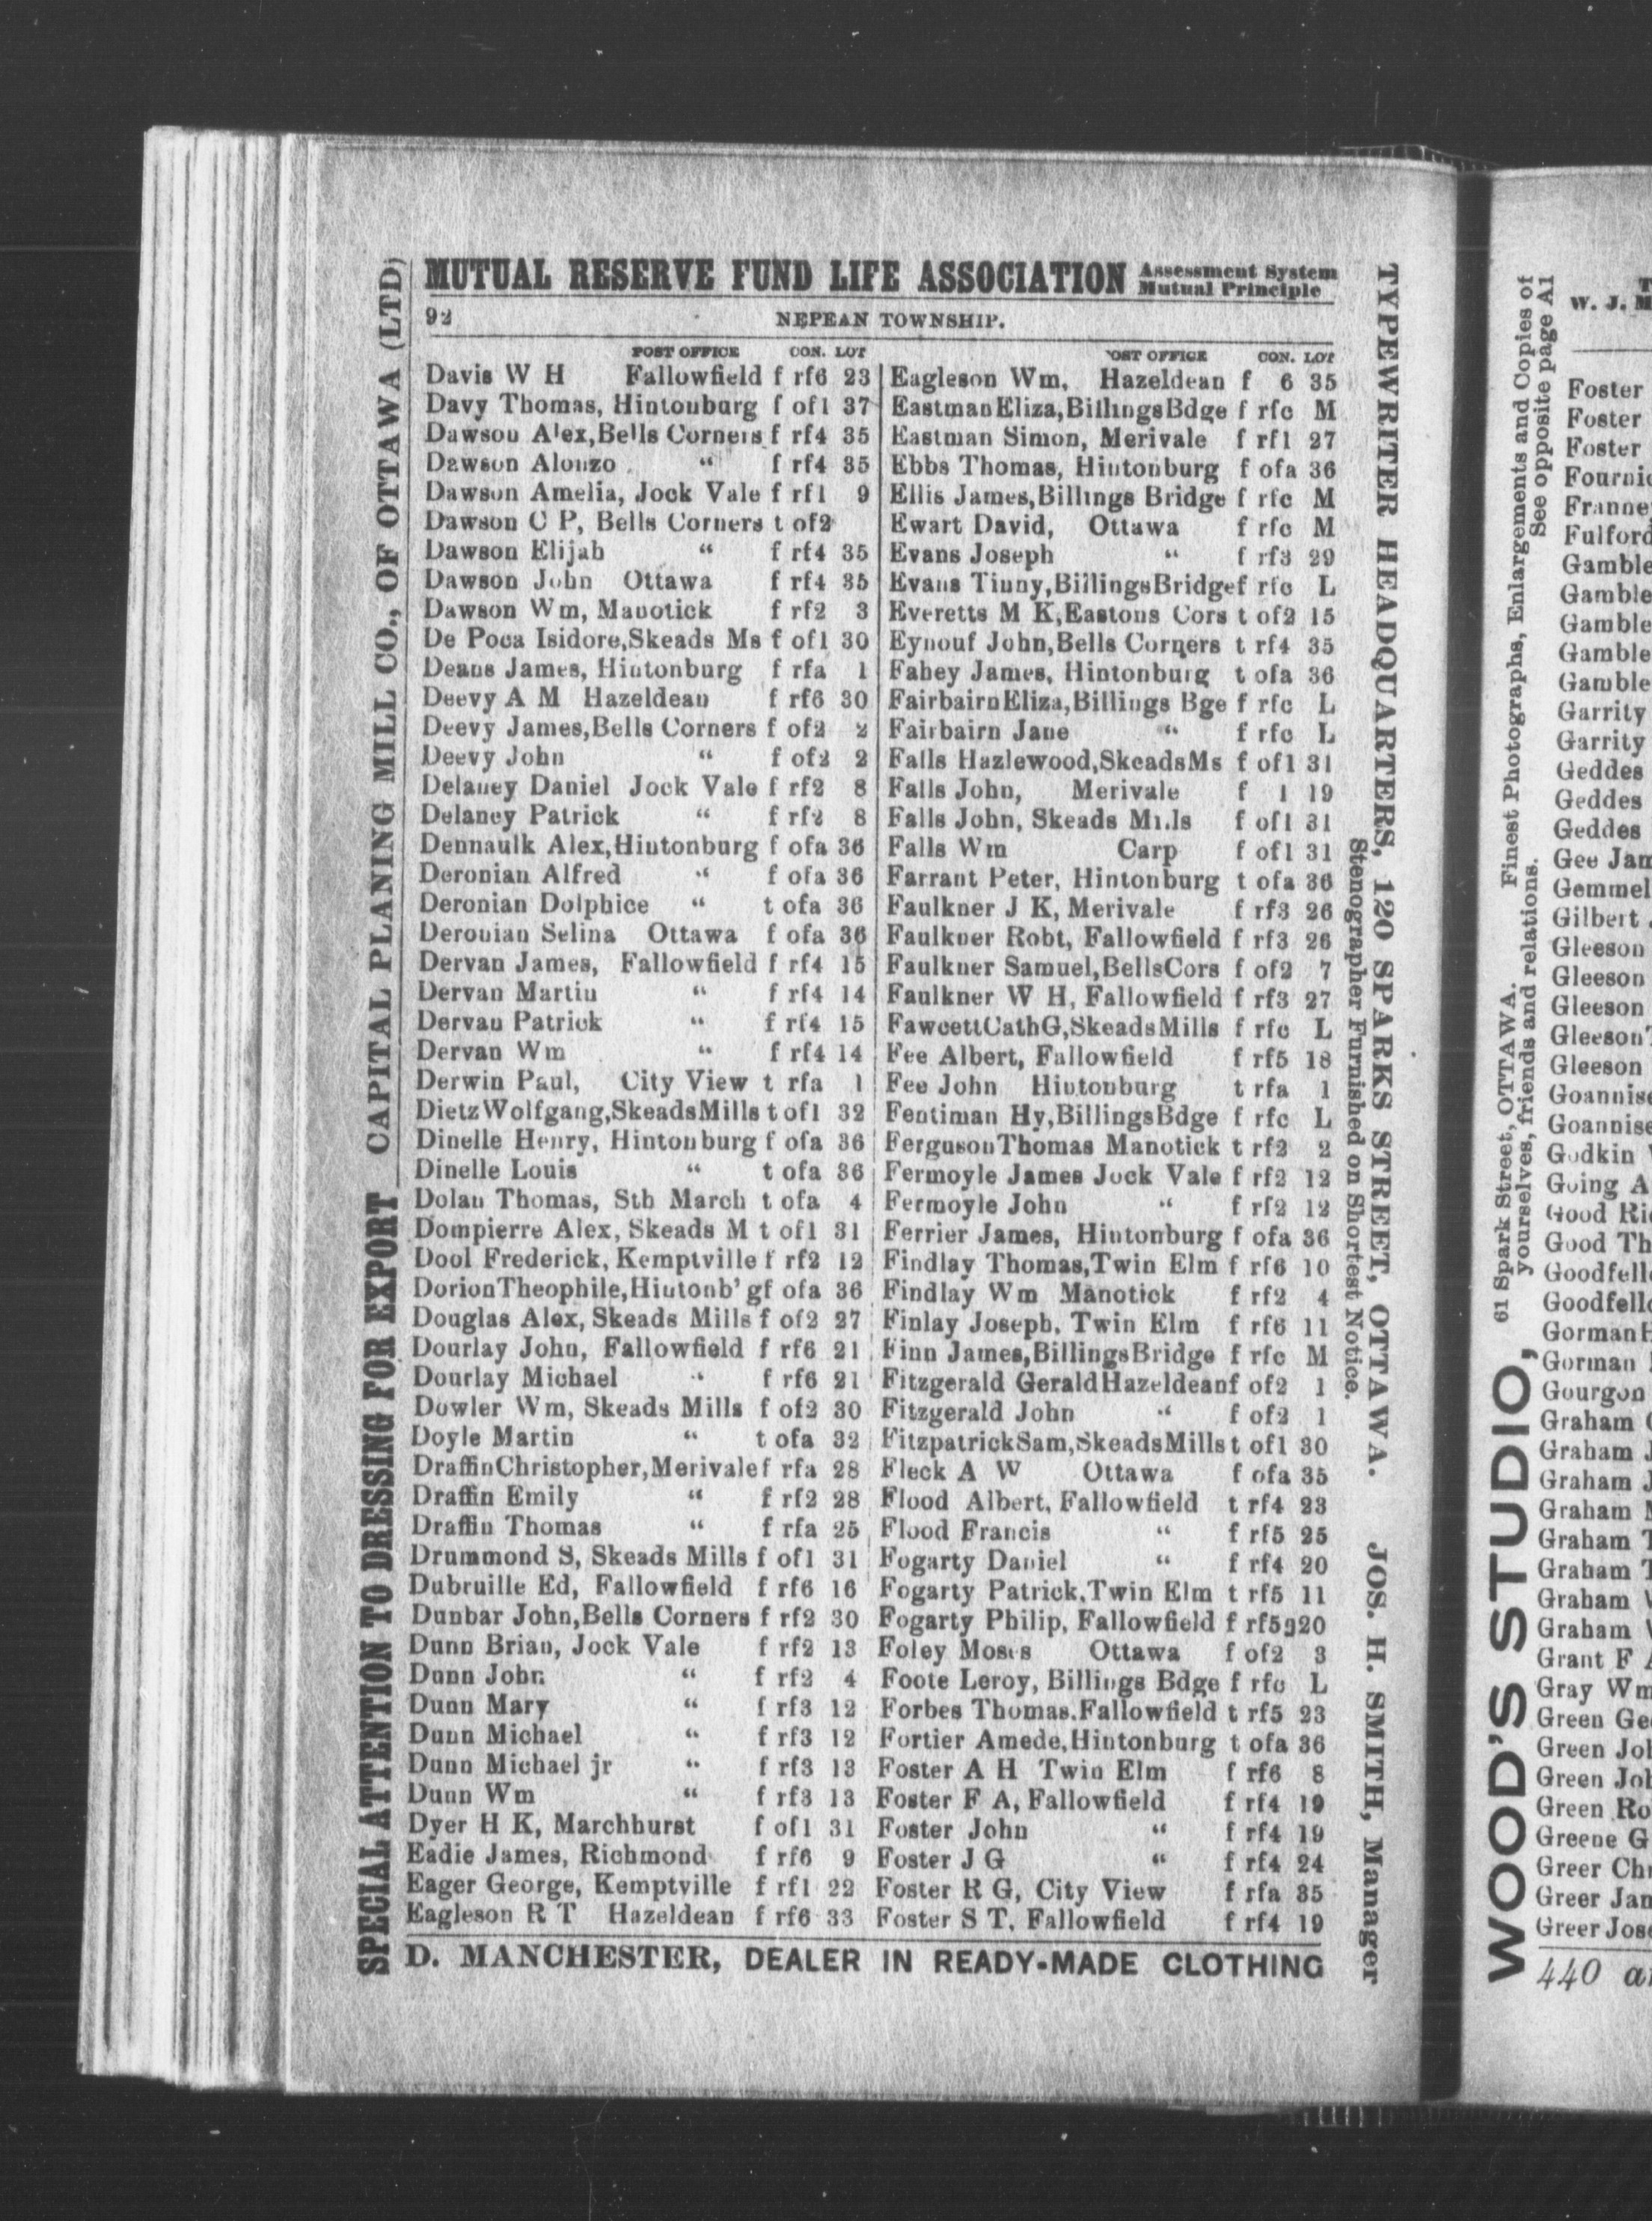 MUTUAL RESERVE FUND LIFE ASSOCIATION Assessment System Mutual Principle
92 NEPEAN TOWNSHIP.
POST OFFICE CON. LOT
Davis W H Fallowfield f rf6 23
Davy Thomas, Hintonburg f of1 37
Dawson Alex,Bells Corners f rf4 35
Dawson Alonzo “ f rf4 35
Dawson Amelia, Jock Vale f rf1 9
Dawson C P, Bells Corners t of2
Dawson Elijah “ f rf4 35
Dawson John Ottawa f rf4 35
Dawson Wm, Manotick f rf2 3
De Poca Isidore,Skeads Ms f of1 30
Deans James, Hintonburg f rfa 1
Deevy A M Hazeldean f rf6 30
Deevy James,Bells Corners f of2 2
Deevy John “ f of2 2
Delaney Daniel Jock Vale f rf2 8
Delaney Patrick “ f rf2 8
Dennaulk Alex,Hintonburg f ofa 36
Deronian Alfred “ f ofa 36
Deronian Dolphice “ t ofa 36
Deronian Selina Ottawa f ofa 36
Dervan James, Fallowfield f rf4 15
Dervan Martin “ f rf4 14
Dervan Patrick “ f rf4 15
Dervan Wm “ f rf4 14
Derwin Paul, City View t rfa 1
Dietz Wolfgang,SkeadsMills t of1 32
Dinelle Henry, Hintonburg f ofa 36
Dinelle Louis “ t ofa 36
Dolan Thomas, Sth March t ofa 4
Dompierre Alex, Skeads M t of1 31
Dool Frederick, Kemptville f rf2 12
DorionTheophile,Hintonb'g f ofa 36
Douglas Alex, Skeads Mills f of2 27
Dourlay John, Fallowfield f rf6 21
Dourlay Michael “ f rf6 21
Dowler Wm, Skeads Mills f of2 30
Doyle Martin “ t ofa 32
DraffinChristopher,Merivale f rfa 28
Draffin Emily “ f rf2 28
Draffin Thomas “ f rfa 25
Drummond S, Skeads Mills f of1 31
Dubruille Ed, Fallowfield f rf6 16
Dunbar John,Bells Corners f rf2 30
Dunn Brian, Jock Vale f rf2 13
Dunn John “ f rf2 4
Dunn Mary “ f rf3 12
Dunn Michael “ f rf3 12
Dunn Michael jr “ f rf3 13
Dunn Wm “ f rf3 13
Dyer H K, Marchhurst f of1 31
Eadie James, Richmond f rf6 9
Eager George, Kemptville f rf1 22
Eagleson R T Hazeldean f rf6 33
POST OFFICE CON. LOT
Eagleson Wm, Hazeldean f 6 35
EastmanEliza,BillingsBdge f rfc M
Eastman Simon, Merivale f rf1 27
Ebbs Thomas, Hintonburg f ofa 36
Ellis James,Billings Bridge f rfc M
Ewart David, Ottawa f rfc M
Evans Joseph “ f rf3 29
Evans Tinny,BillingsBridge f rfc L
Everetts M K,Eastons Cors t of2 15
Eynouf John,Bells Corners t rf4 35
Fahey James, Hintonburg t ofa 36
FairbairnEliza,Billings Bge f rfc L
Fairbairn Jane “ f rfc L
Falls Hazlewood,SkeadsMs f of1 31
Falls John, Merivale f 1 19
Falls John, Skeads Mills f of1 31
Falls Wm Carp f of1 31
Farrant Peter, Hintonburg t ofa 36
Faulkner J K, Merivale f rf3 26
Faulkner Robt, Fallowfield f rf3 26
Faulkner Samuel,BellsCors f of2 7
Faulkner W H, Fallowfield f rf3 27
FawcettCathG,SkeadsMills f rfc L
Fee Albert, Fallowfield f rf5 18
Fee John Hintonburg t rfa 1
Fentiman Hy,BillingsBdge f rfc L
FergusonThomas Manotick t rf2 2
Fermoyle James Jock Vale f rf2 12
Fermoyle John “ f rf2 12
Ferrier James, Hintonburg f ofa 36
Findlay Thomas,Twin Elm f rf6 10
Findlay Wm Manotick f rf2 4
Finlay Joseph, Twin Elm f rf6 11
Finn James,BillingsBridge f rfc M
Fitzgerald GeraldHazeldean f of2 1
Fitzgerald John “ f of2 1
FitzpatrickSam,SkeadsMills t of1 30
Fleck A W Ottawa f ofa 35
Flood Albert, Fallowfield t rf4 23
Flood Francis “ f rf5 25
Fogarty Daniel “ f rf4 20
Fogarty Patrick,Twin Elm t rf5 11
Fogarty Philip, Fallowfield f rf5g20
Foley Moses Ottawa f of2 3
Foote Leroy, Billings Bdge f rfc L
Forbes Thomas,Fallowfield t rf5 23
Fortier Amede,Hintonburg t ofa 36
Foster A H Twin Elm f rf6 8
Foster F A, Fallowfield f rf4 19
Foster John “ f rf4 19
Foster J G “ f rf4 24
Foster R G, City View f rfa 35
Foster S T, Fallowfield f rf4 19
D. MANCHESTER, DEALER IN READY-MADE CLOTHING
SPECIAL ATTENTION TO DRESSING FOR EXPORT CAPITAL PLANING MILL CO., OF OTTAWA (LTD)
TYPEWRITER HEADQUARTERS, 120 SPARKS STREET, OTTAWA. JOS. H. SMITH, Manager
Stenographer Furnished on Shortest Notice.
WOOD'S STUDIO, 61 Spark Street, OTTAWA. Finest Photographs, Enlargements and Copies of
yourselves, friends and relations. See opposite page A1
W. J. M
Foster
Foster
Foster
Fournie
Franne
Fulford
Gamble
Gamble
Gamble
Gamble
Gamble
Garrity
Garrity
Geddes
Geddes
Geddes
Gee Jam
Gemmel
Gilbert
Gleeson
Gleeson
Gleeson
Gleeson
Gleeson
Goannise
Goannise
Godkin
Going A
Good Ri
Good Th
Goodfell
Goodfell
Gorman
Gorman
Gourgon
Graham
Graham J
Graham J
Graham
Graham T
Graham T
Graham
Graham
Grant F
Gray Wm
Green Ge
Green Joh
Green Joh
Green Ro
Greene G
Greer Chr
Greer Jan
Greer Jos
440